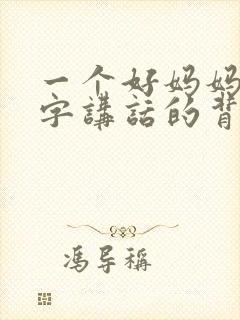 一个好妈妈
字講話的背
馮导稱